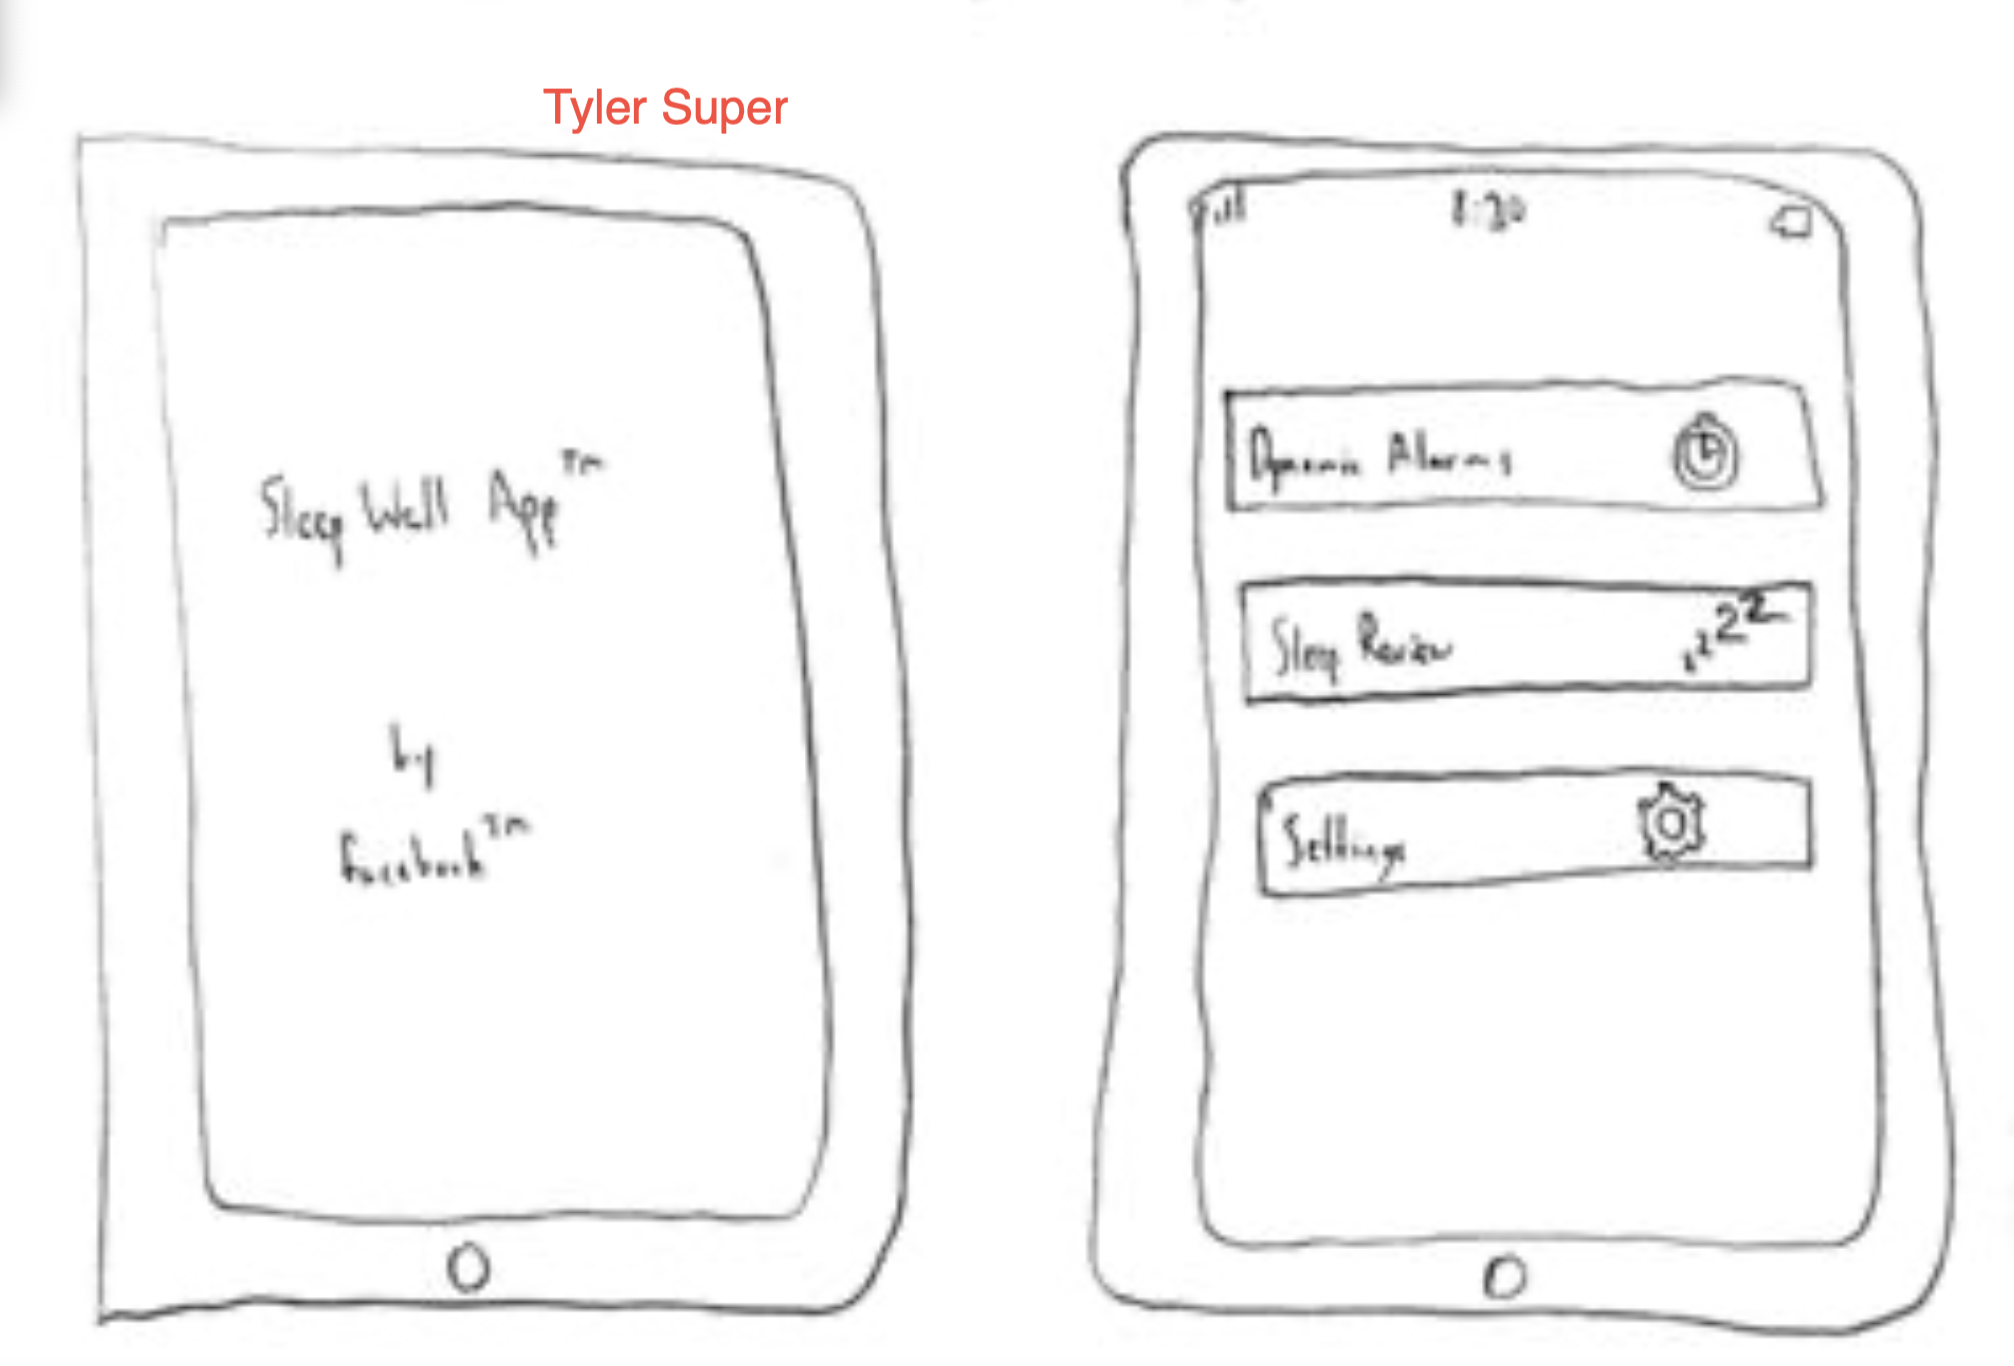 Tyler Super
Sleep Well App™
by
facebook™
8:30
Dynamic Alarms
Sleep Review
zzZZ
Settings